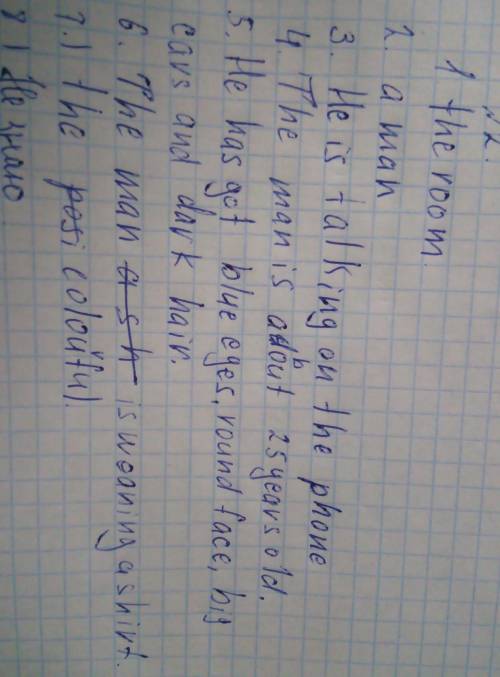 №2.
1 the room.
2. a man
3. He is talking on the phone
4. The man is about 25 years old.
5. He has got blue eges, round face, big
ears and dark hair.
6. The man a sh is weaning a shirt.
7.) the posi colourful.
8) Не знаю